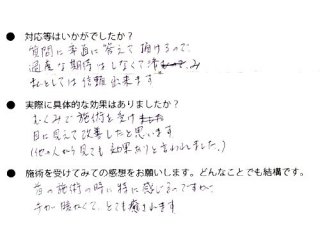 ● 対応等はいかがでしたか？
質問に素直に答えて頂けるので、
過度な期待はしなくて済み
私としては信頼出来ます
● 実際に具体的な効果はありましたか？
むくみで施術を受け
目に見えて改善したと思います
(他の人から見ても効果ありと言われました。)
● 施術を受けてみての感想をお願いします。どんなことでも結構です。
首の施術の時に特に感じるのですが、
手が暖かくて、とても癒されます